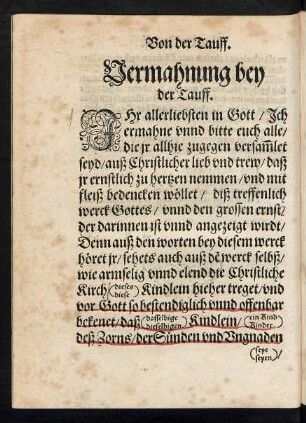 Von der Tauff.
Vermahnung bey
der Tauff.
IHr allerliebsten in Gott / Ich
ermahne vnnd bitte euch alle /
die jr allhie zugegen versam̃let
seyd / auß Christlicher lieb vnd trew / daß
jr ernstlich zu hertzen nemmen / vnd mit
fleiß bedencken wöllet / diß treffenlich
werck Gottes / vnnd den grossen ernst /
der darinnen ist vnnd angezeigt wirdt /
Denn auß den worten bey diesem werck
höret jr / sehets auch auß dẽ werck selbst /
wie armselig vnnd elend die Christliche
Kirch (dieses / diese) Kindlein hieher treget / vnd
vor Gott so bestendiglich vnnd offenbar
bekenet / daß (dasselbige / dieselbigen) Kindlein / (ein Kind / Kinder)
deß Zorns / der Sünden vnd Vngnaden
(seye / seyen) /